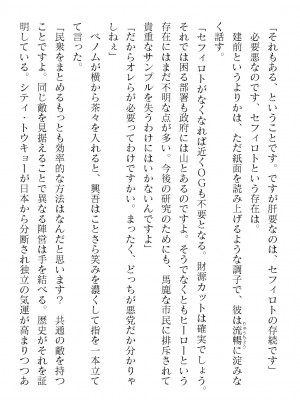 「それもある、ということです。ですが肝要なのは、セフィロトの存続です」
必要悪なのです、セフィロトという存在は。
建前というよりかは、ただ紙面を読み上げるような調子で、彼は流暢に淀みな
く話す。
「セフィロトがなくなれば近くＯＧも不要となる。財源カットは確実でしょう。
それでは困る部署も政府には山とあるのですよ。そうでなくともヒーローという
存在にはまだ不明な点が多い。今後の研究のためにも、馬鹿な市民に排斥されて
貴重なサンプルを失うわけにはいかないんですよ」
「だからオレらが必要ってわけですかい。まったく、どっちが悪党だか分かりゃ
しねぇ」
ペノムが横から茶々を入れると、興吾はことさら笑みを濃くして指を一本立て
て言った。
「民衆をまとめるもっとも効率的な方法はなんだと思います？　共通の敵を持つ
ことですよ。同じ敵を見据えることで異なる陣営は手を結べる。歴史がそれを証
明している。シティ・トウキョーが日本から分断され独立の気運が高まりつつあ